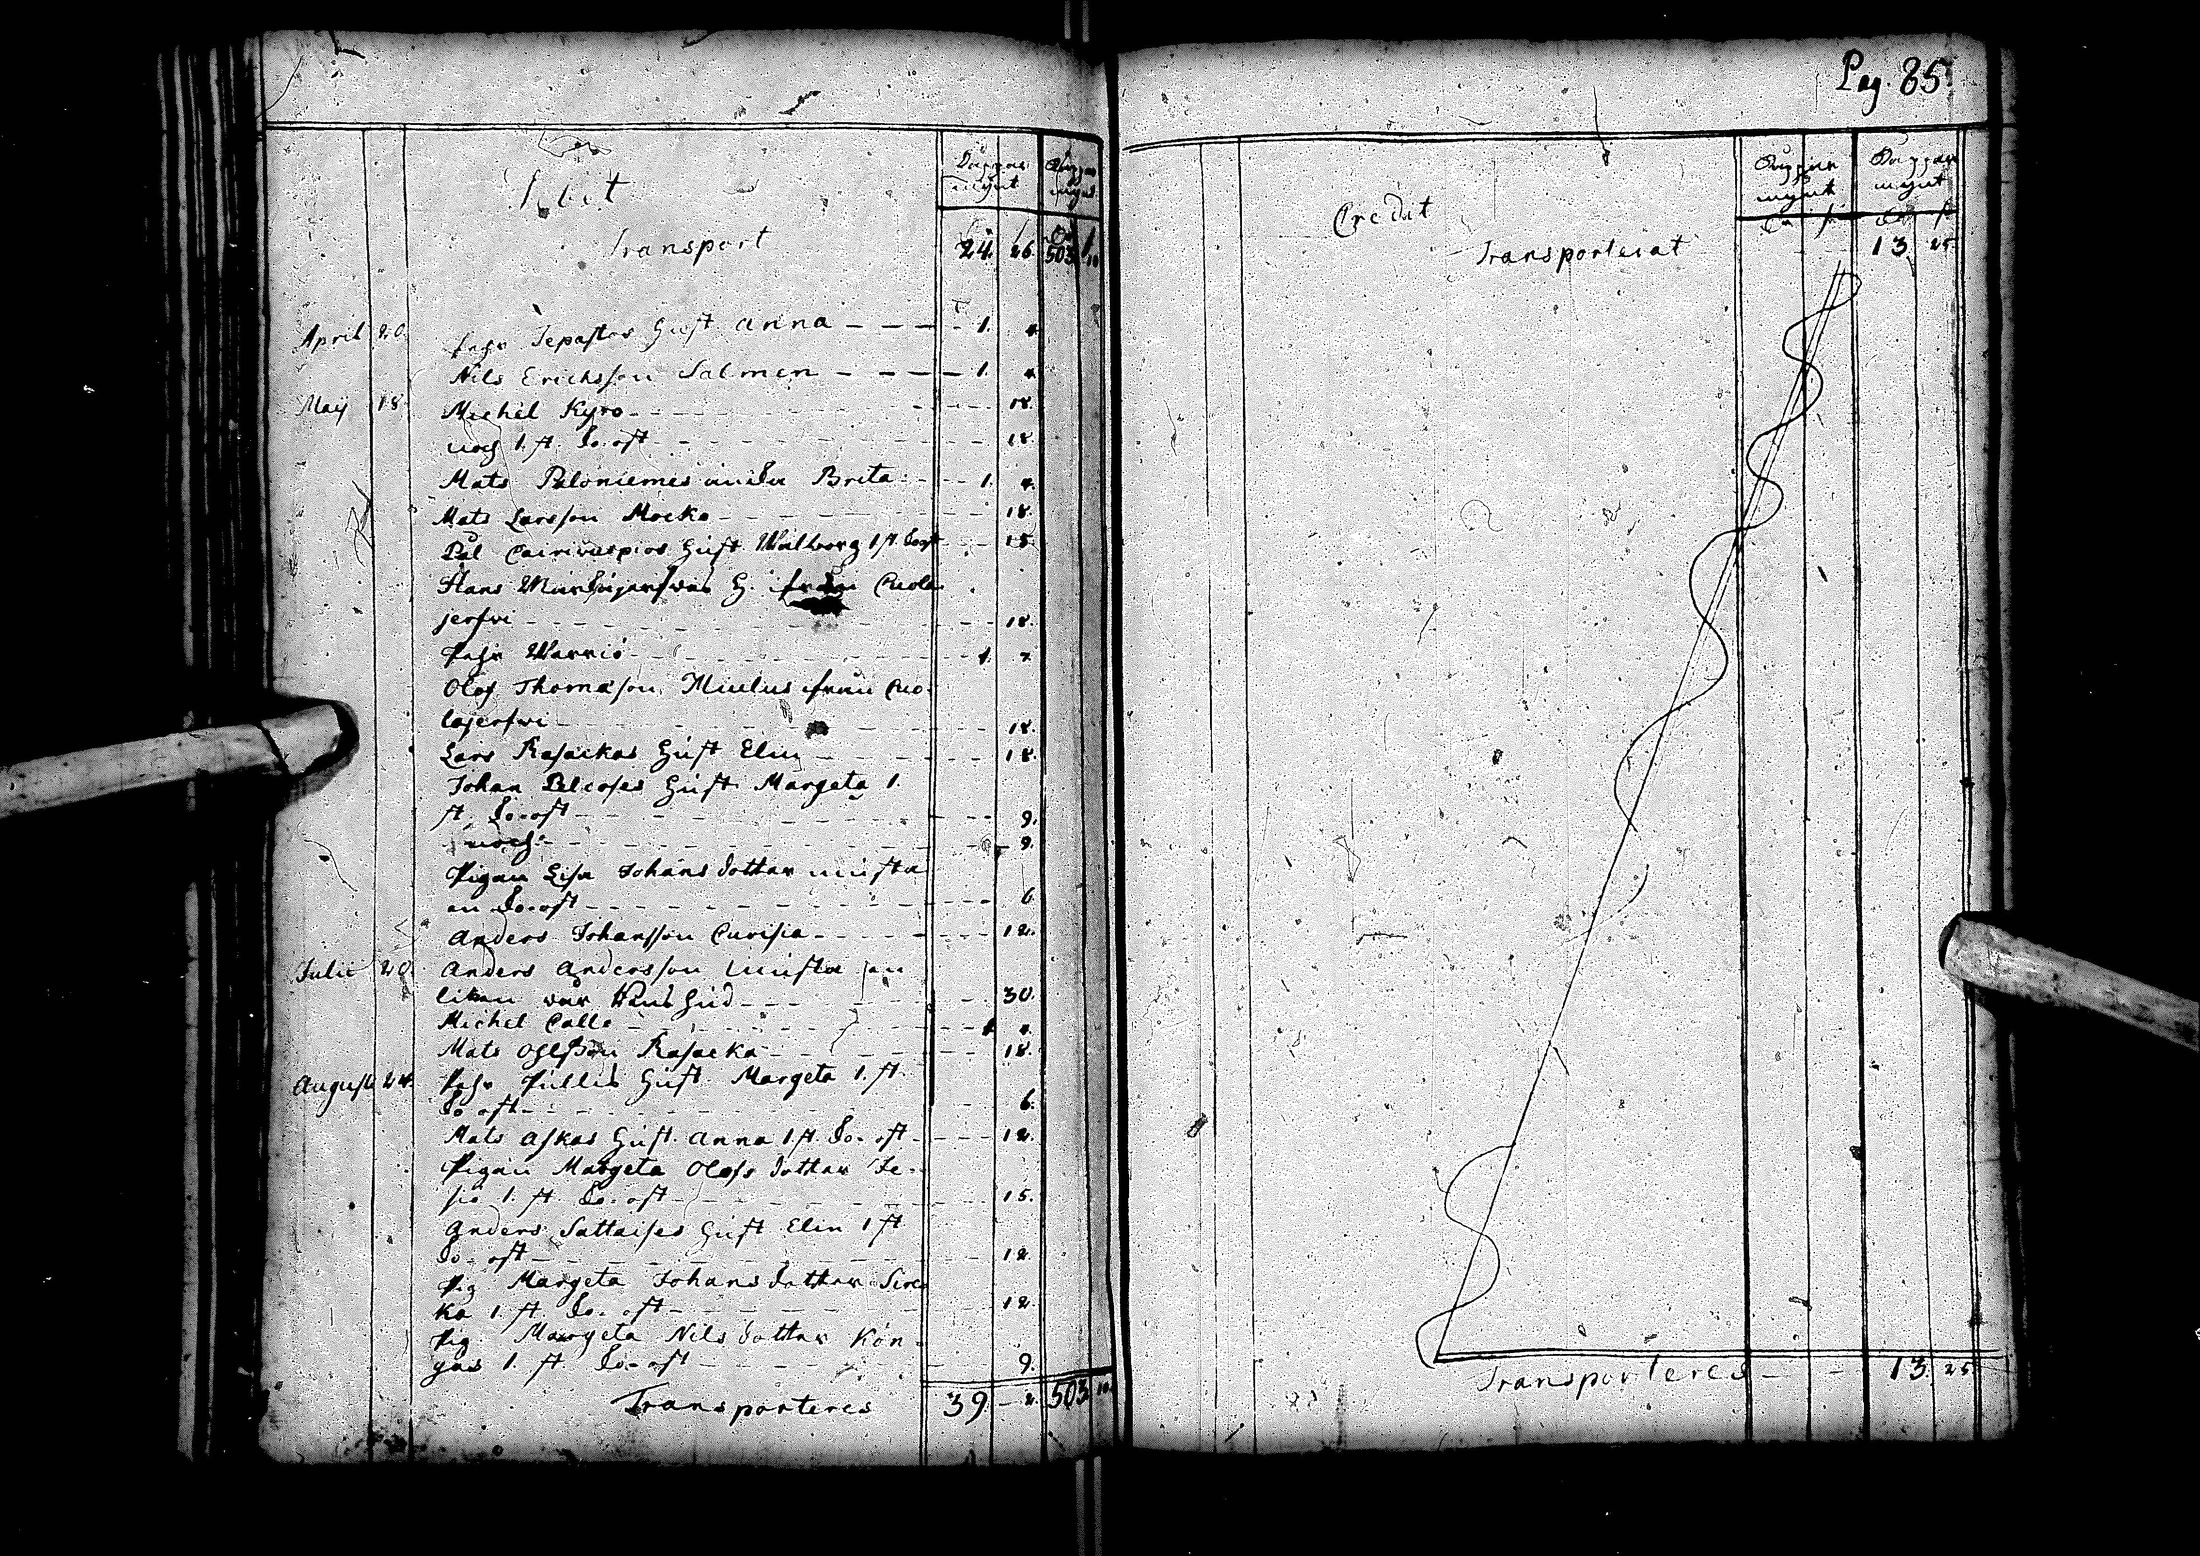 Debet
Koppar mynt Koppar mynt
Transport 24. 26. 503 10
April 20. Pehr Hust. Anna - - - - 1. 4.
Nils Erichsson Salmen - - - - 1. 4.
Maij 18. Michel Kyro - - - - 18.
noch 1. st. do. oft - - - - 18.
Mats Paloniemes Brita - - - 1. 4.
Mats Larsson Mocka - - - - 18.
Pål Hust. Walborg 1 st. do oft - - 15.
Hans H. från Cuola
jerfwi - - - - 18.
Pehr Warrio - - - - 1. 4.
Olof Thomasson från Cuo-
lajerfwi - - - - 18.
Lars Rasackas Hust Elin - - - - 18.
Johan Pelcoses Hust. Margeta 1.
st. do. oft - - - - 9.
noch - - - - 9.
Pigan Lisa Johans dotter
en do. oft - - - - 6.
Anders Johansson Curisia - - - - 12.
Julii 20. Anders Andersson en
liten - - - 30.
Michel Calla - - - - 1 4.
Mats Rasacka - - - - 18.
Augusti 24. Pehr Pullis Hust. Margeta 1. st.
do oft - - - - 6.
Mats Askas Hust. Anna 1 st. do. oft - - - 12.
Pigan Margeta Olofs dotter Je-
sio 1. st. do. oft - - - - 15.
Anders Sattaises Hust Elin 1 st
do. oft - - - - 12.
Pig Margeta Johans dotter Sirc
ka 1. st. do. oft - - - - 12.
Pig. Margeta Nils dotter Kon-
gas 1. st. do. oft - - - - 9.
Transporteres 39 - 2. 503 10.
Pag. 85.
Koppar mynt Koppar mynt
Credit
Transporterat 13. 25
Transporteres - - 13. 25